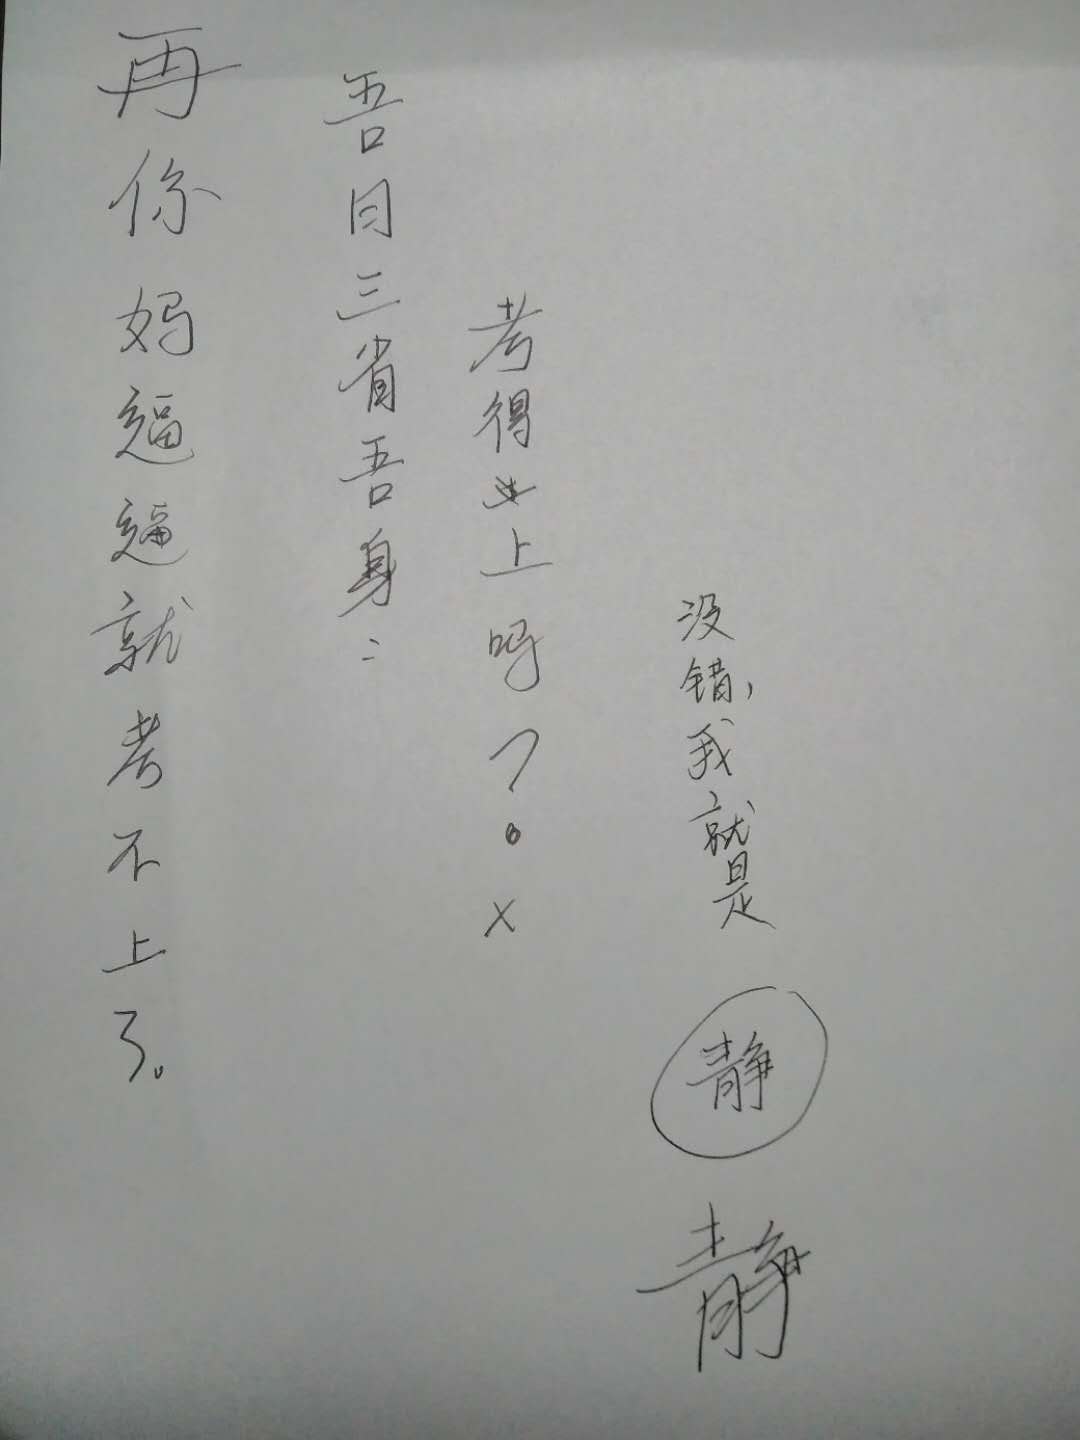 再你妈逼逼就考不上了。
吾日三省吾身：
考得上吗？。×
没错，我就是
静
静